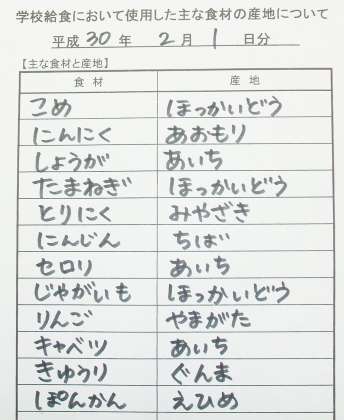 学校給食において使用した主な食材の産地について
平成 30 年 2 月 1 日分
【主な食材と産地】
食材 産地
こめ ほっかいどう
にんにく あおもり
しょうが あいち
たまねぎ ほっかいどう
とりにく みやざき
にんじん ちば
セロリ あいち
じゃがいも ほっかいどう
りんご やまがた
キャベツ あいち
きゅうり ぐんま
ぽんかん えひめ